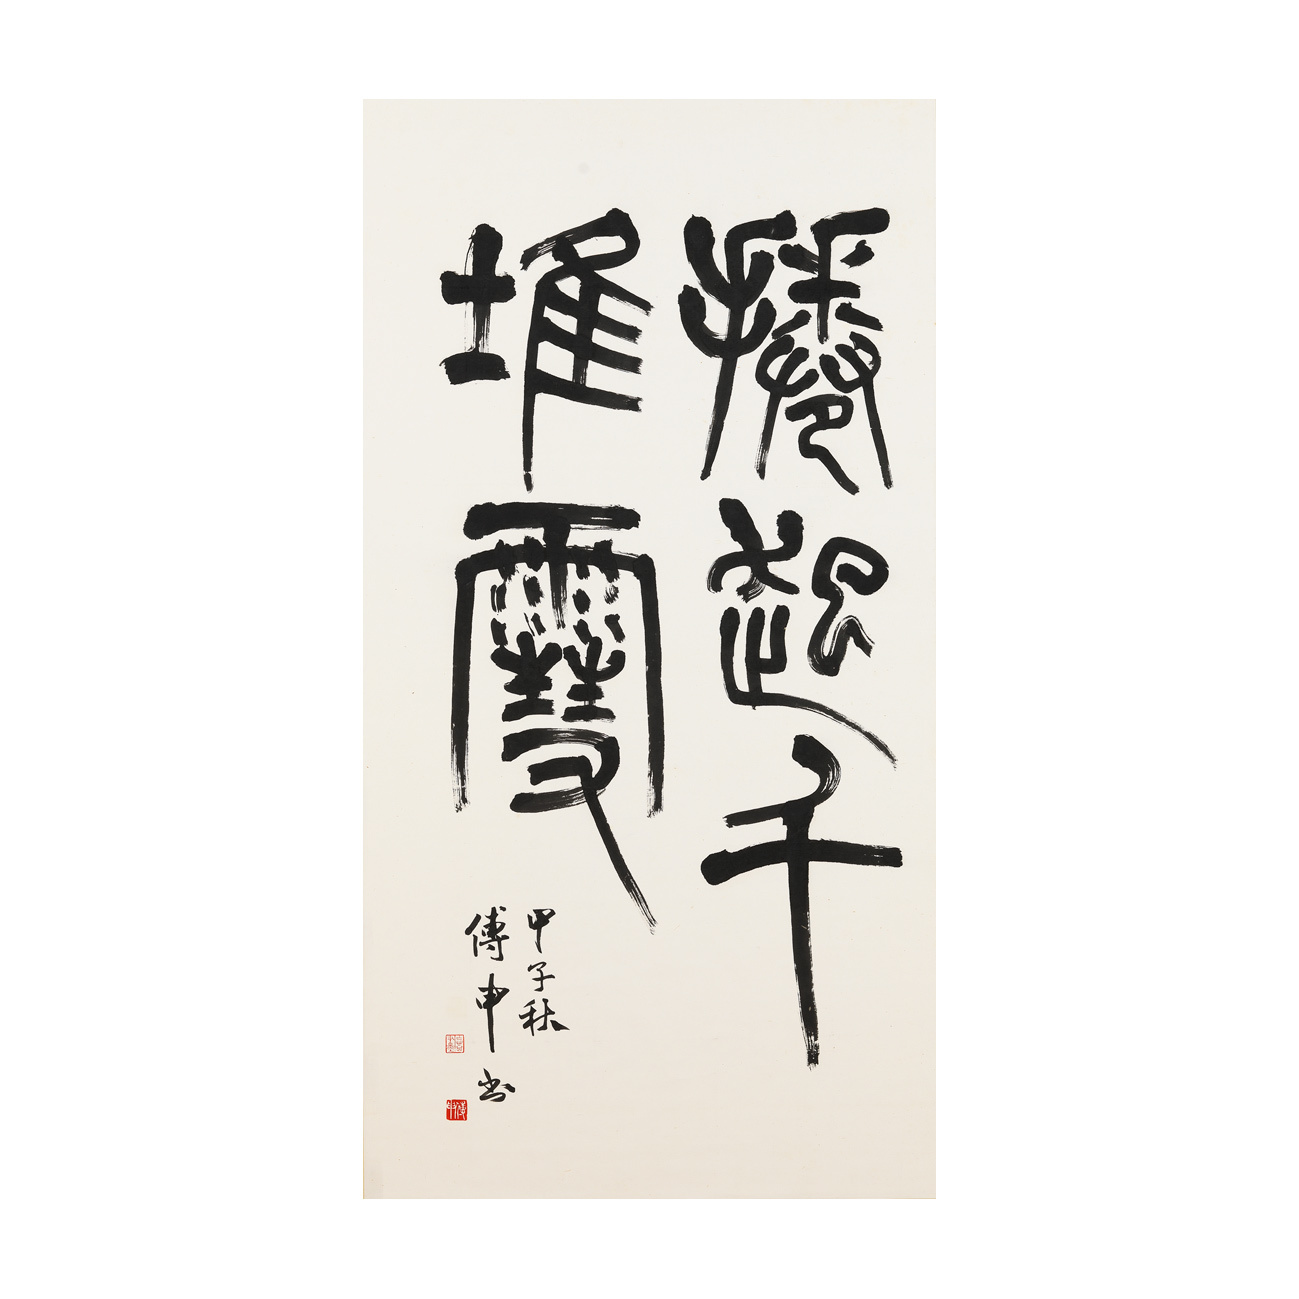 捲起千
堆雪
甲子秋
傅申书